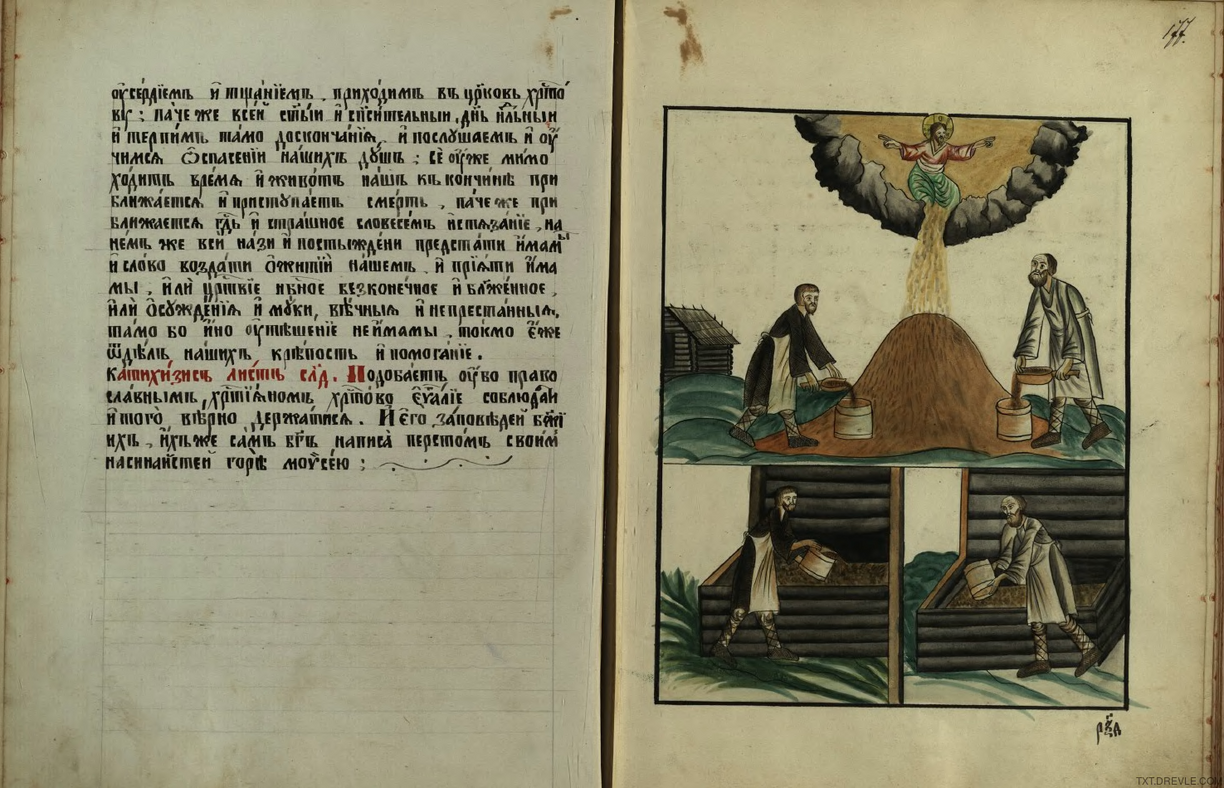 оу҆се́рдїемъ и҆ тщанїемъ, приходимъ въ цр҃ковь хрⷭ҇то́
ву : паче же всеи ст҃ыи и҆ сп҃си́тельныи, дн҃ь нл҃ьныи
и҆ терпимъ тамо доскончанїѧ, и҆ послꙋшаемъ и҆ оу҆
чимсѧ ѻ҆спасенїи на́шихъ дꙋшъ : се́ оу҆́же мимо
ходитъ вре́мѧ и҆ живо́тъ нашъ къ кончинѣ при
ближаетсѧ и҆ пристꙋпаетъ смерть, паче же при
ближаетсѧ гдⷭ҇ь и҆ страшное словесе́мъ истѧза́нїе, на
не́мъ же вси на́зи и҆ постыжде́ни предста́ти и҆́мамы
и҆ слово возда́ти ѻ҆житїй на́шемъ, и҆ прїѧ́ти и҆́ма
мы, и҆́ли црⷭ҇твїе нбⷭ҇ное безконе́чное и҆ блж҃е́нное,
и҆́ли ѻ҆сꙋжде́нїѧ и҆ мꙋ́ки, вѣ́чныѧ и҆ непреста́нныѧ,
та́мо бо и҆́но оу҆тѣше́нїе не и҆́мамы, то́кмо є҆́же
ѿдѣ́лъ на́шихъ крѣ́пость и҆ помога́нїе.
Катихи́зисъ ли́стъ сл҃д. Подоба́етъ оу҆́бо право
сла́внымъ, хрⷭ҇тїѧ́номъ хрⷭ҇то́во є҆ѵⷢ҇алїе соблюда́й
и҆ того̀ вѣ́рно держа́тисѧ. И҆ є҆го̀ за́повѣдей бж҃їй
ихъ, и҆́хъже са́мъ бг҃ъ написа̀ персто́мъ свои́мъ
на сина́йстей го́рѣ моѷсе́ю :
177.
рѯ҃а
TXT.DREVLE.COM